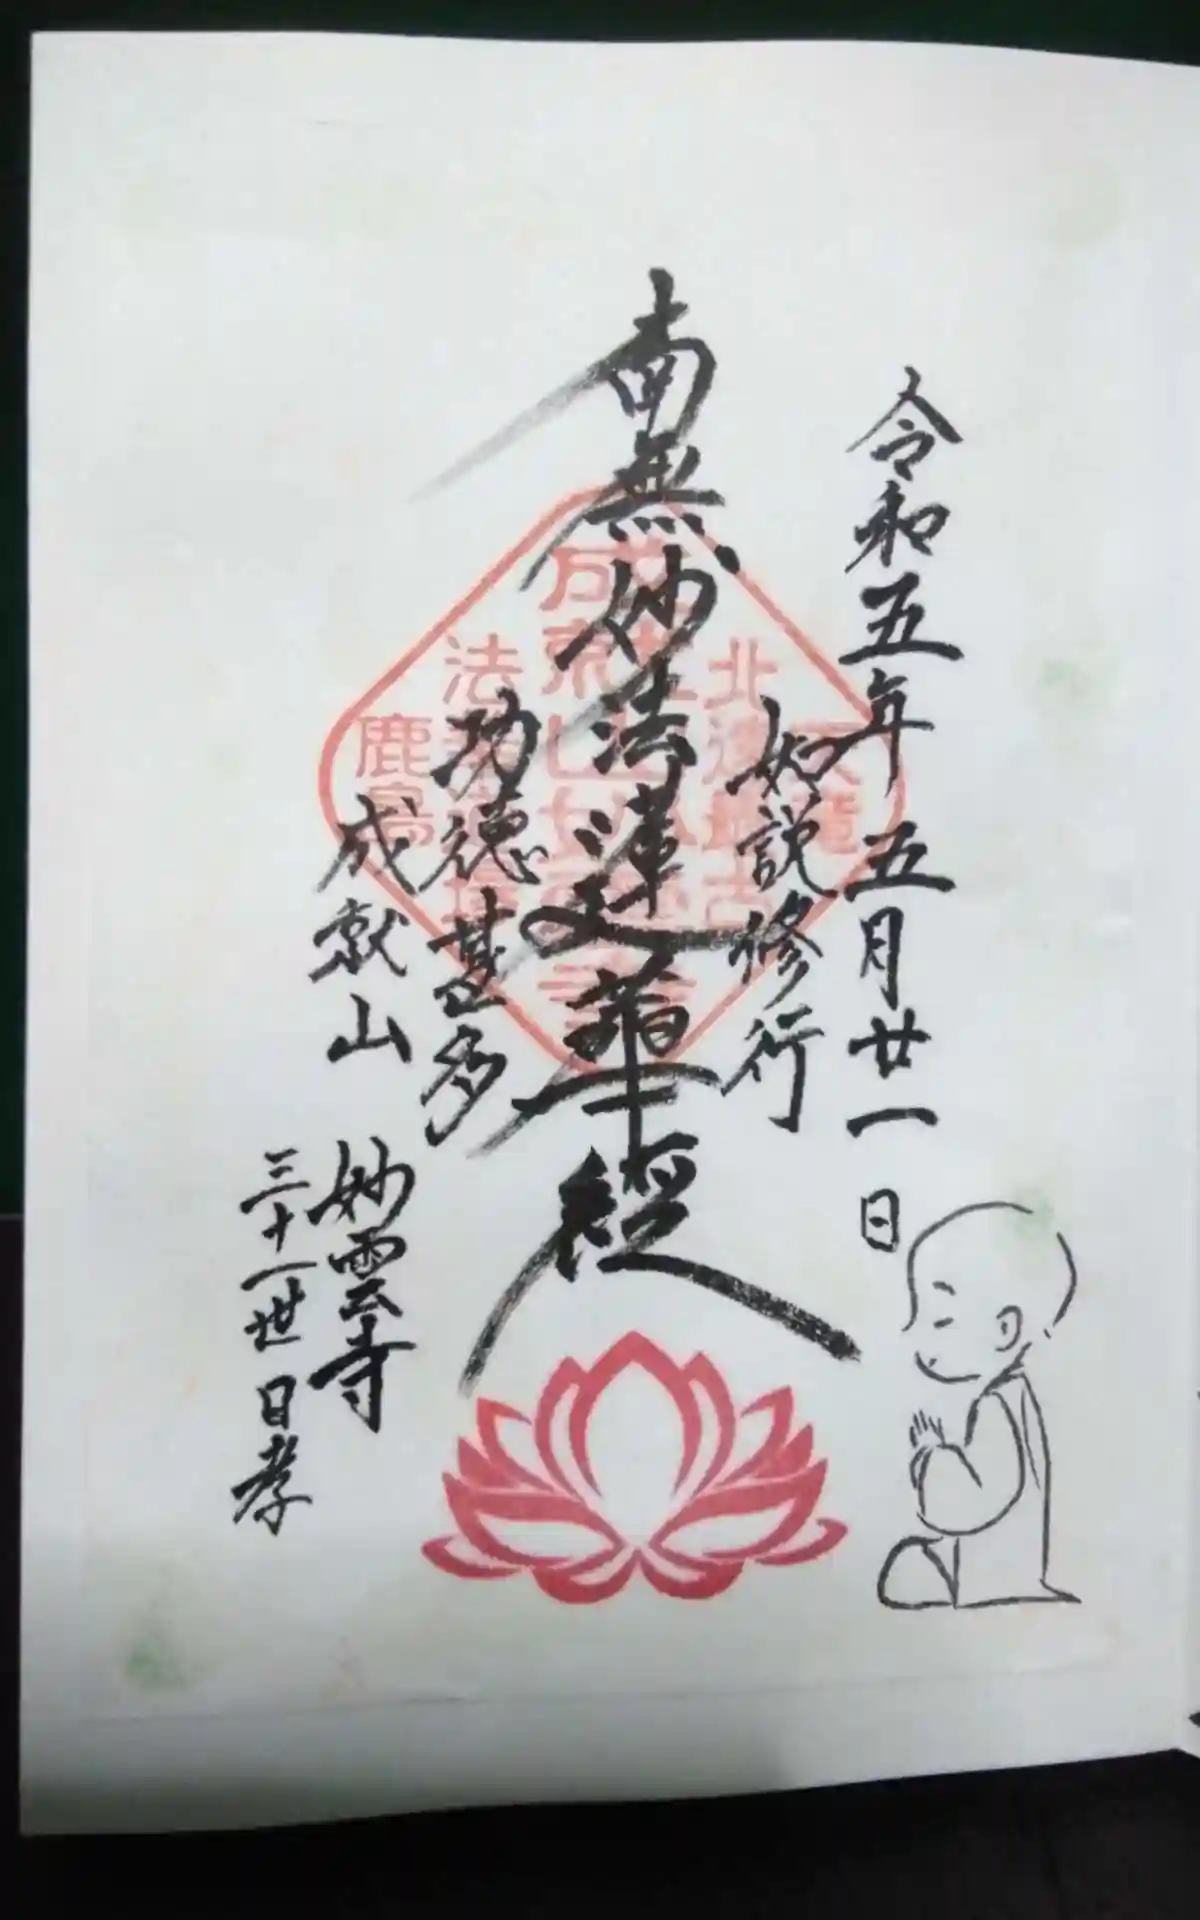 令和五年五月廿一日
如説修行
南無妙法蓮華経
功徳甚多
成就山
妙雲寺
三十一世日孝
北
法
鹿島